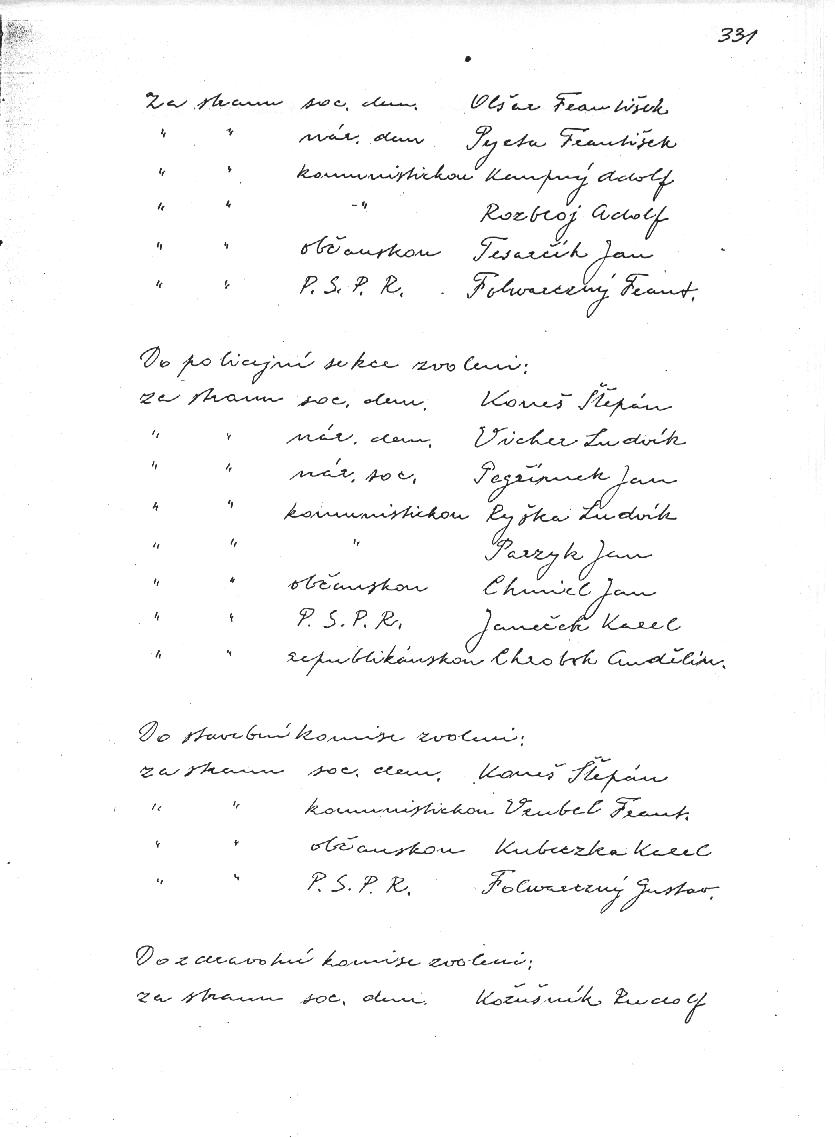 331
Za stranu soc. dem. Olšar František
" " nár. dem Pycta František
" " komunistickou Kempný Adolf
" " -" Rozbroj Adolf
" " občanskou Tesarčík Jan
" " P. S. P. R. Folwarczný Frant.
Do policejní sekce zvoleni:
za stranu soc. dem. Koneš Štěpán
" " nár. dem. Vicher Ludvík
" " nár. soc. Pegřimek Jan
" " komunistickou Ryška Ludvík
" " " Parzyk Jan
" " občanskou Chmiel Jan
" " P. S. P. R. Janeček Karel
" " republikánskou Chroboh Andělín.
Do stavební komise zvoleni:
za stranu soc. dem. Koneš Štěpán
" " komunistickou Vrubel Frant.
" " občanskou Kubeczka Karel
" " P. S. P. R. Folwarczný Gustav.
Do zdravotní komise zvoleni:
za stranu soc. dem. Kožušník Rudolf